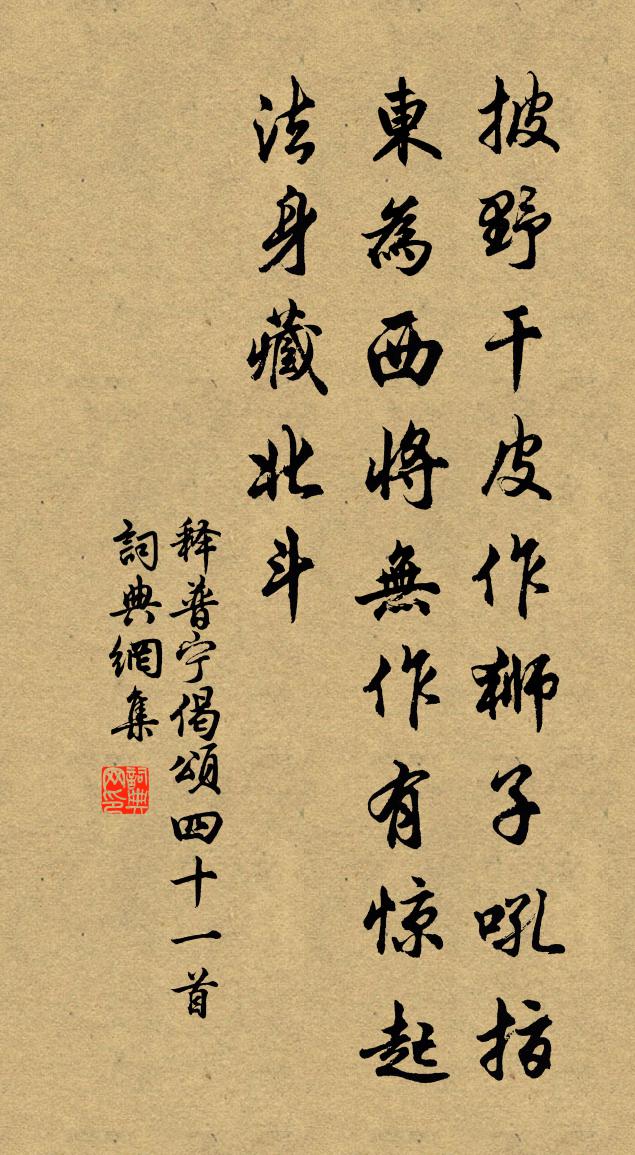 披野干皮作狮子吼指
東為西将無作有惊起
法身藏北斗
释普宁偈頌四十一首
詞典網集
詞典网印